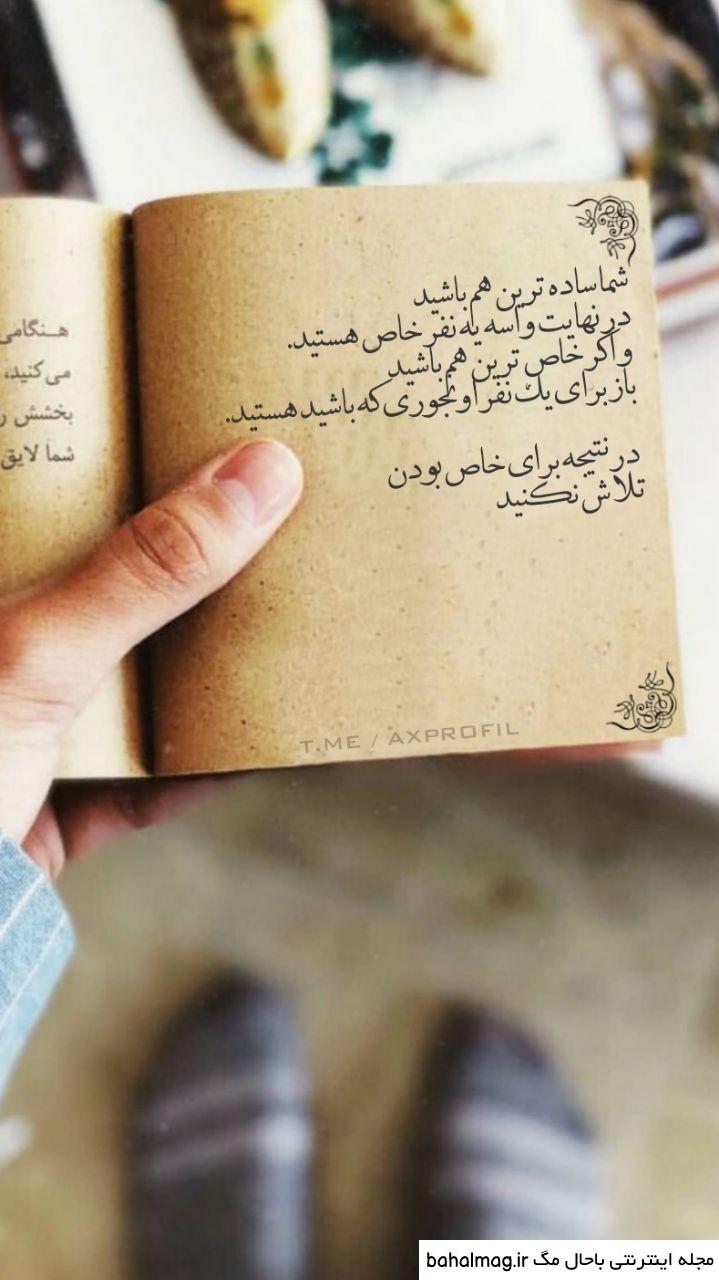 شما ساده ترین هم باشید
در نهایت واسه یه نفر خاص هستید.
و اگر خاص ترین هم باشید
باز برای یک نفر اونجوری که باشید هستید.
در نتیجه برای خاص بودن
تلاش نکنید
هنگامی
می‌کنید،
بخشش ر
شما لایق
T.ME / AXPROFIL
مجله اینترنتی باحال مگ bahalmag.ir